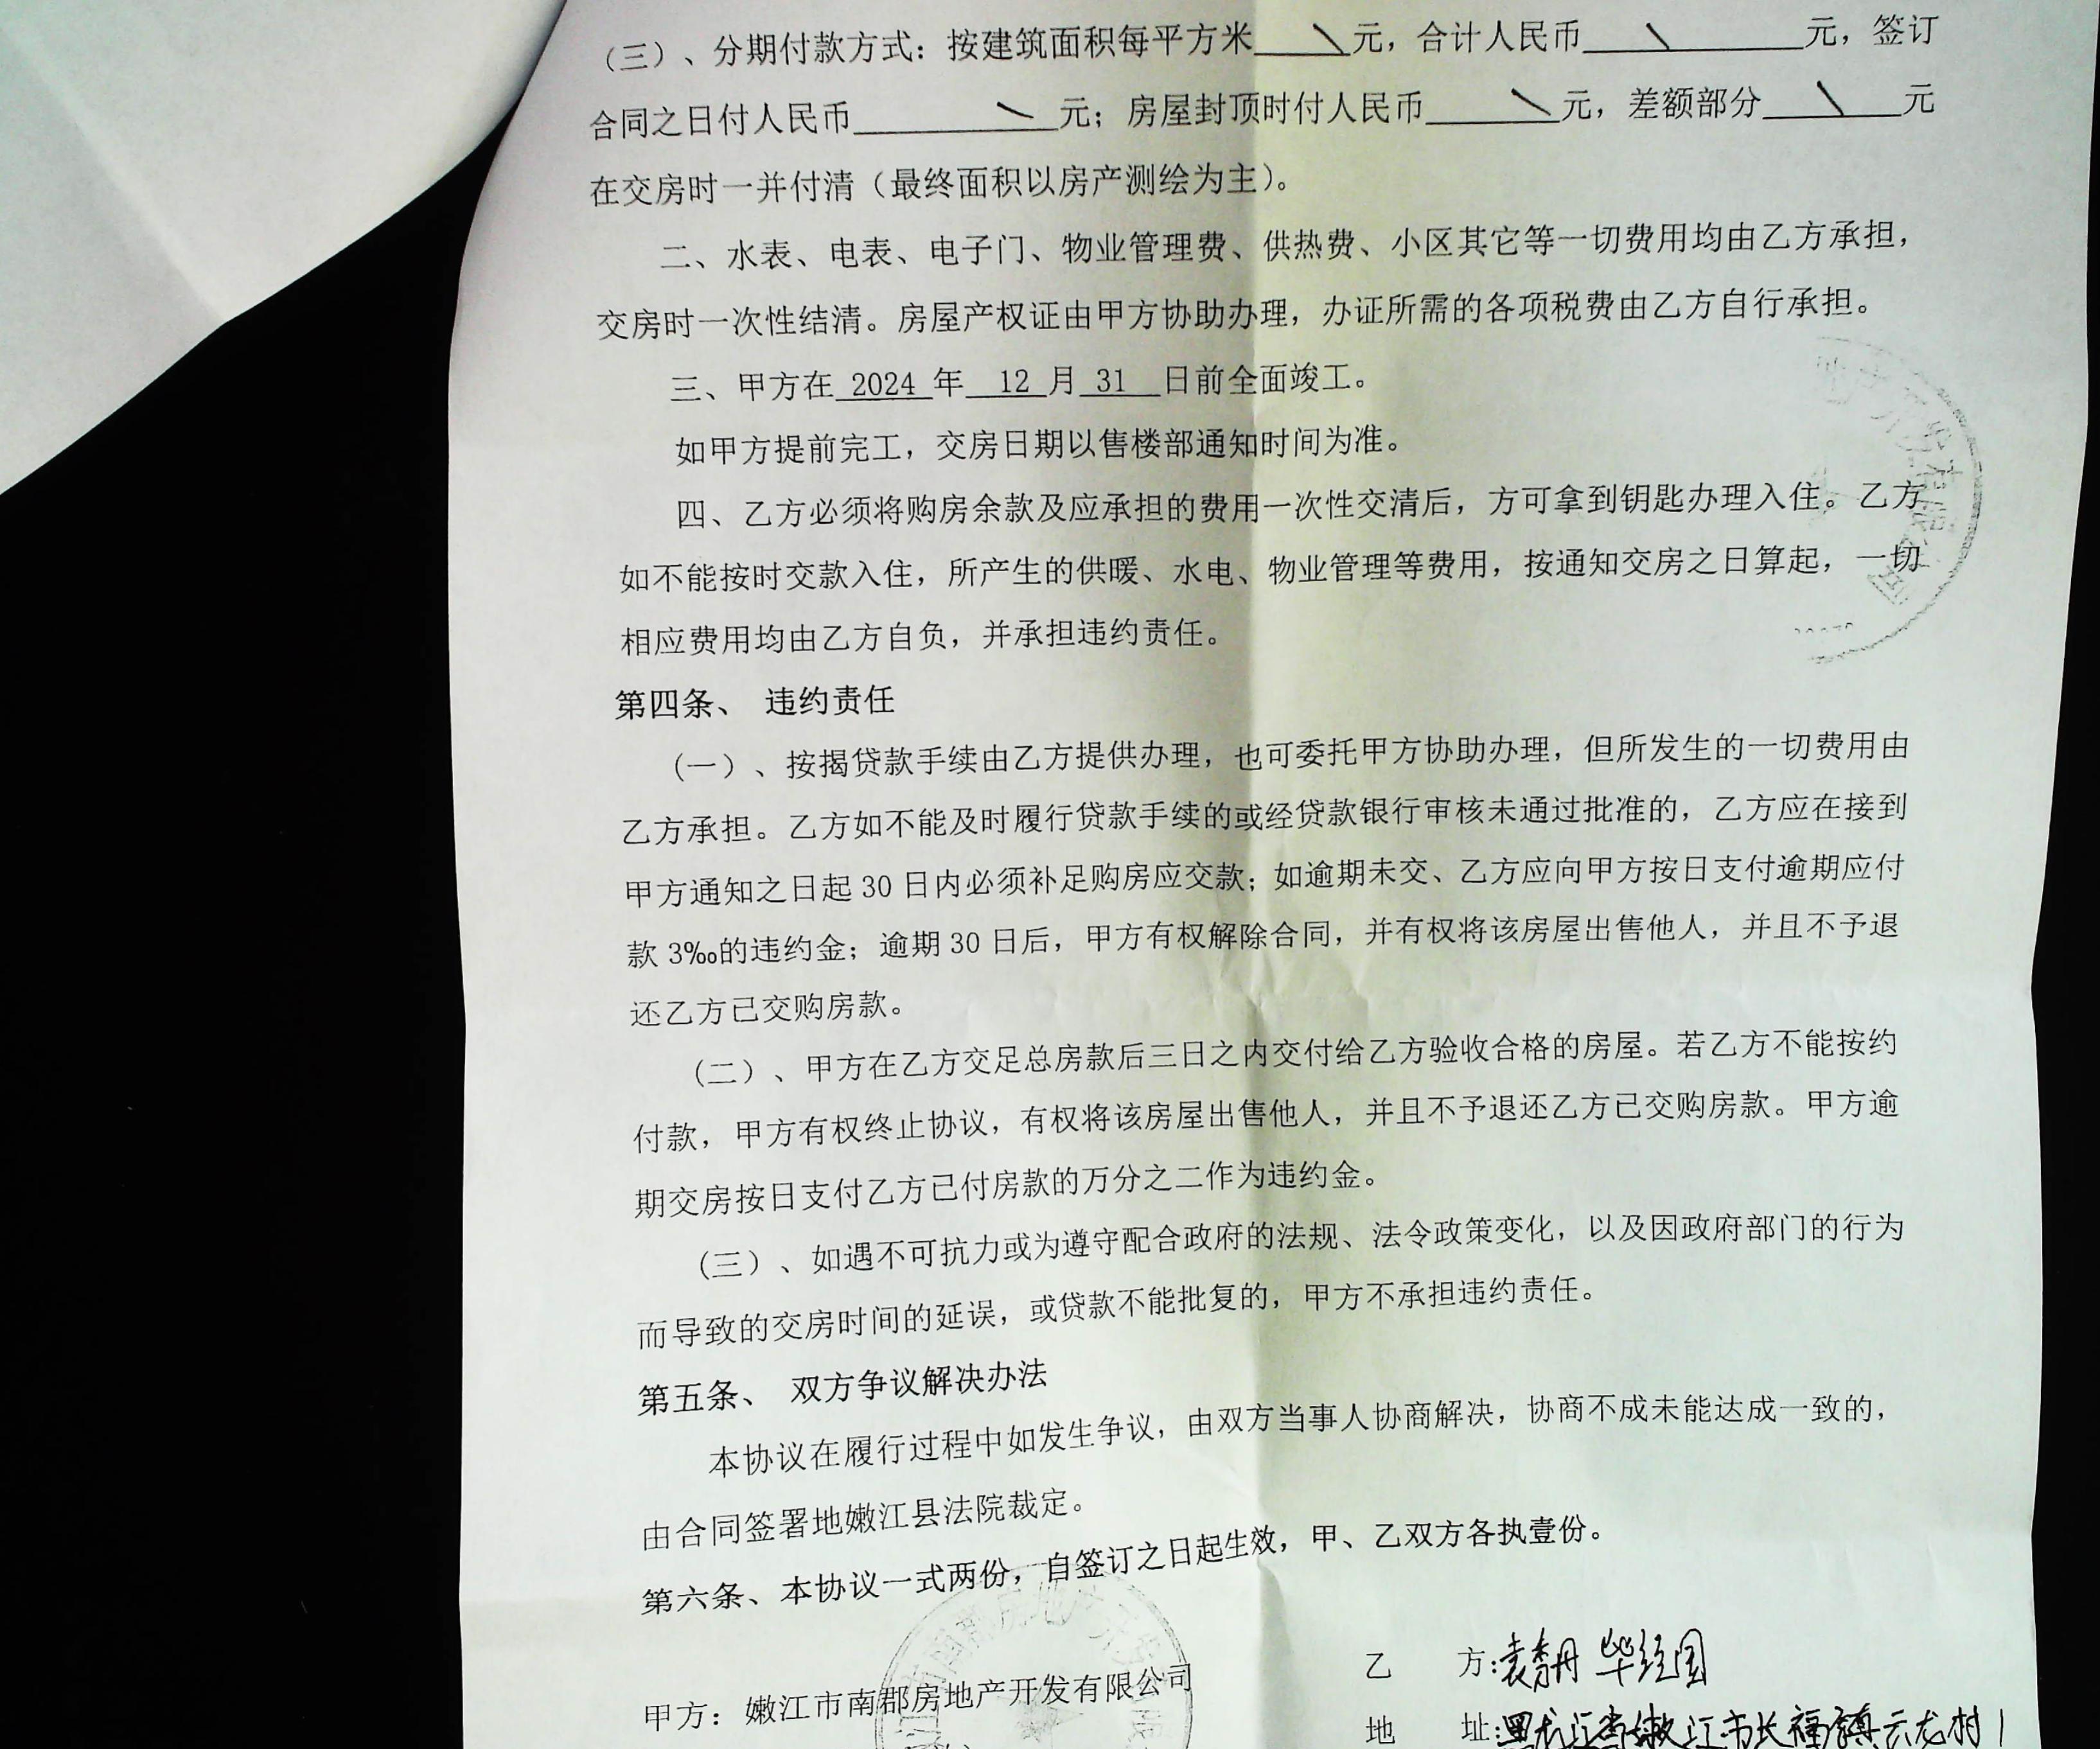 （三）、分期付款方式：按建筑面积每平方米＼元，合计人民币＼元，签订
合同之日付人民币＼元；房屋封顶时付人民币＼元，差额部分＼元
在交房时一并付清（最终面积以房产测绘为主）。
二、水表、电表、电子门、物业管理费、供热费、小区其它等一切费用均由乙方承担，
交房时一次性结清。房屋产权证由甲方协助办理，办证所需的各项税费由乙方自行承担。
三、甲方在 2024 年 12 月 31 日前全面竣工。
如甲方提前完工，交房日期以售楼部通知时间为准。
四、乙方必须将购房余款及应承担的费用一次性交清后，方可拿到钥匙办理入住。乙方
如不能按时交款入住，所产生的供暖、水电、物业管理等费用，按通知交房之日算起，一切
相应费用均由乙方自负，并承担违约责任。
第四条、 违约责任
（一）、按揭贷款手续由乙方提供办理，也可委托甲方协助办理，但所发生的一切费用由
乙方承担。乙方如不能及时履行贷款手续的或经贷款银行审核未通过批准的，乙方应在接到
甲方通知之日起 30 日内必须补足购房应交款；如逾期未交、乙方应向甲方按日支付逾期应付
款 3‱的违约金；逾期 30 日后，甲方有权解除合同，并有权将该房屋出售他人，并且不予退
还乙方已交购房款。
（二）、甲方在乙方交足总房款后三日之内交付给乙方验收合格的房屋。若乙方不能按约
付款，甲方有权终止协议，有权将该房屋出售他人，并且不予退还乙方已交购房款。甲方逾
期交房按日支付乙方已付房款的万分之二作为违约金。
（三）、如遇不可抗力或为遵守配合政府的法规、法令政策变化，以及因政府部门的行为
而导致的交房时间的延误，或贷款不能批复的，甲方不承担违约责任。
第五条、 双方争议解决办法
本协议在履行过程中如发生争议，由双方当事人协商解决，协商不成未能达成一致的，
由合同签署地嫩江县法院裁定。
第六条、本协议一式两份，自签订之日起生效，甲、乙双方各执壹份。
甲方：嫩江市南郡房地产开发有限公司
乙 方：袁秀丹 毕经国
地 址：黑龙江省嫩江市长福镇云龙村